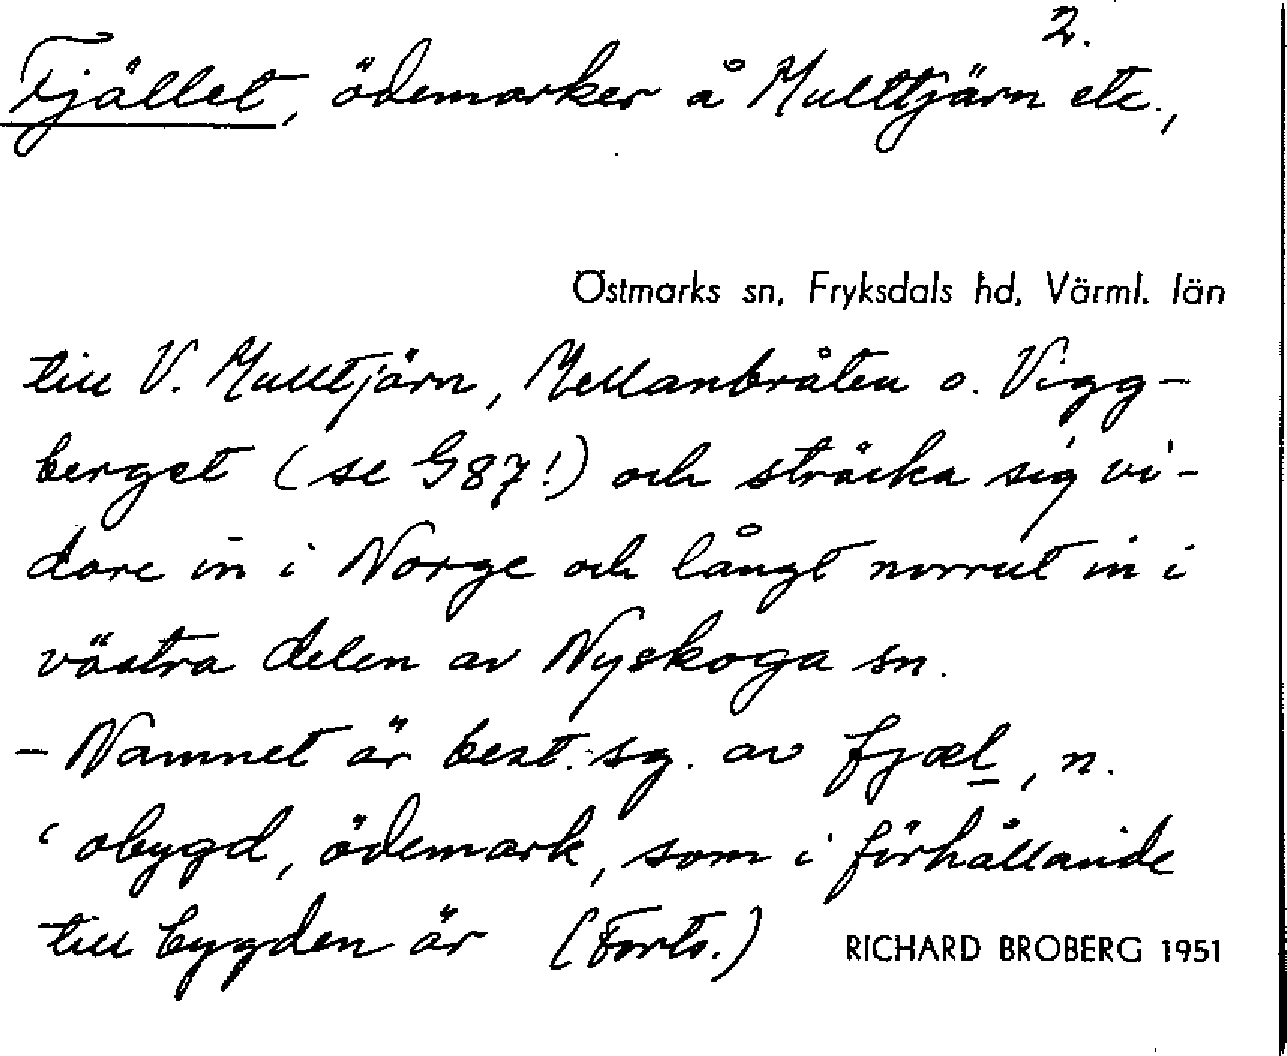 2.
Fjället, ödemarker å Mulltjärn etc.,
Östmarks sn, Fryksdals hd, Värml. län
till V. Mulltjärn, Mellanbråten o. Vigg-
berget (se G87!) och sträcka sig vi-
dare in i Norge och långt norrut in i
västra delen av Nyskoga sn.
- Namnet är best. sg. av fjæl, n.
‘obygd, ödemark, som i förhållande
till bygden är (Forts.)
RICHARD BROBERG 1951